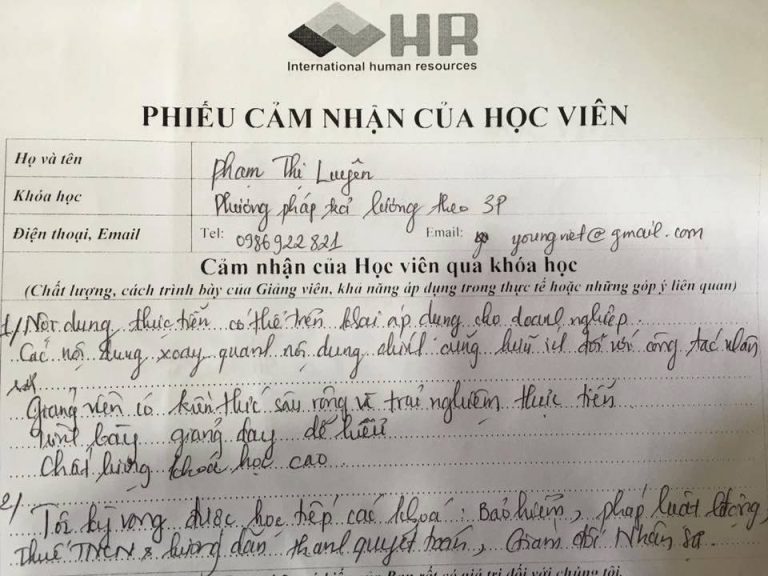 HR
International human resources
PHIẾU CẢM NHẬN CỦA HỌC VIÊN
Họ và tên Phạm Thị Luyên
Khóa học Phương pháp trả lương theo 3P
Điện thoại, Email Tel: 0986922821 Email: youngnet@gmail.com
Cảm nhận của Học viên qua khóa học
(Chất lượng, cách trình bày của Giảng viên, khả năng áp dụng trong thực tế hoặc những góp ý liên quan)
1/ Nội dung thực tiễn có thể triển khai áp dụng cho doanh nghiệp.
Các nội dung xoay quanh nội dung chính cũng hữu ích đối với công tác nhân
sự
Giảng viên có kiến thức sâu rộng về trải nghiệm thực tiễn
Trình bày giảng dạy dễ hiểu
Chất lượng khoá học cao
2/ Tôi kỳ vọng được học tiếp các khoá: Bảo hiểm, pháp luật lao động,
thuế TNCN & hướng dẫn thanh quyết toán, Giám đốc Nhân sự